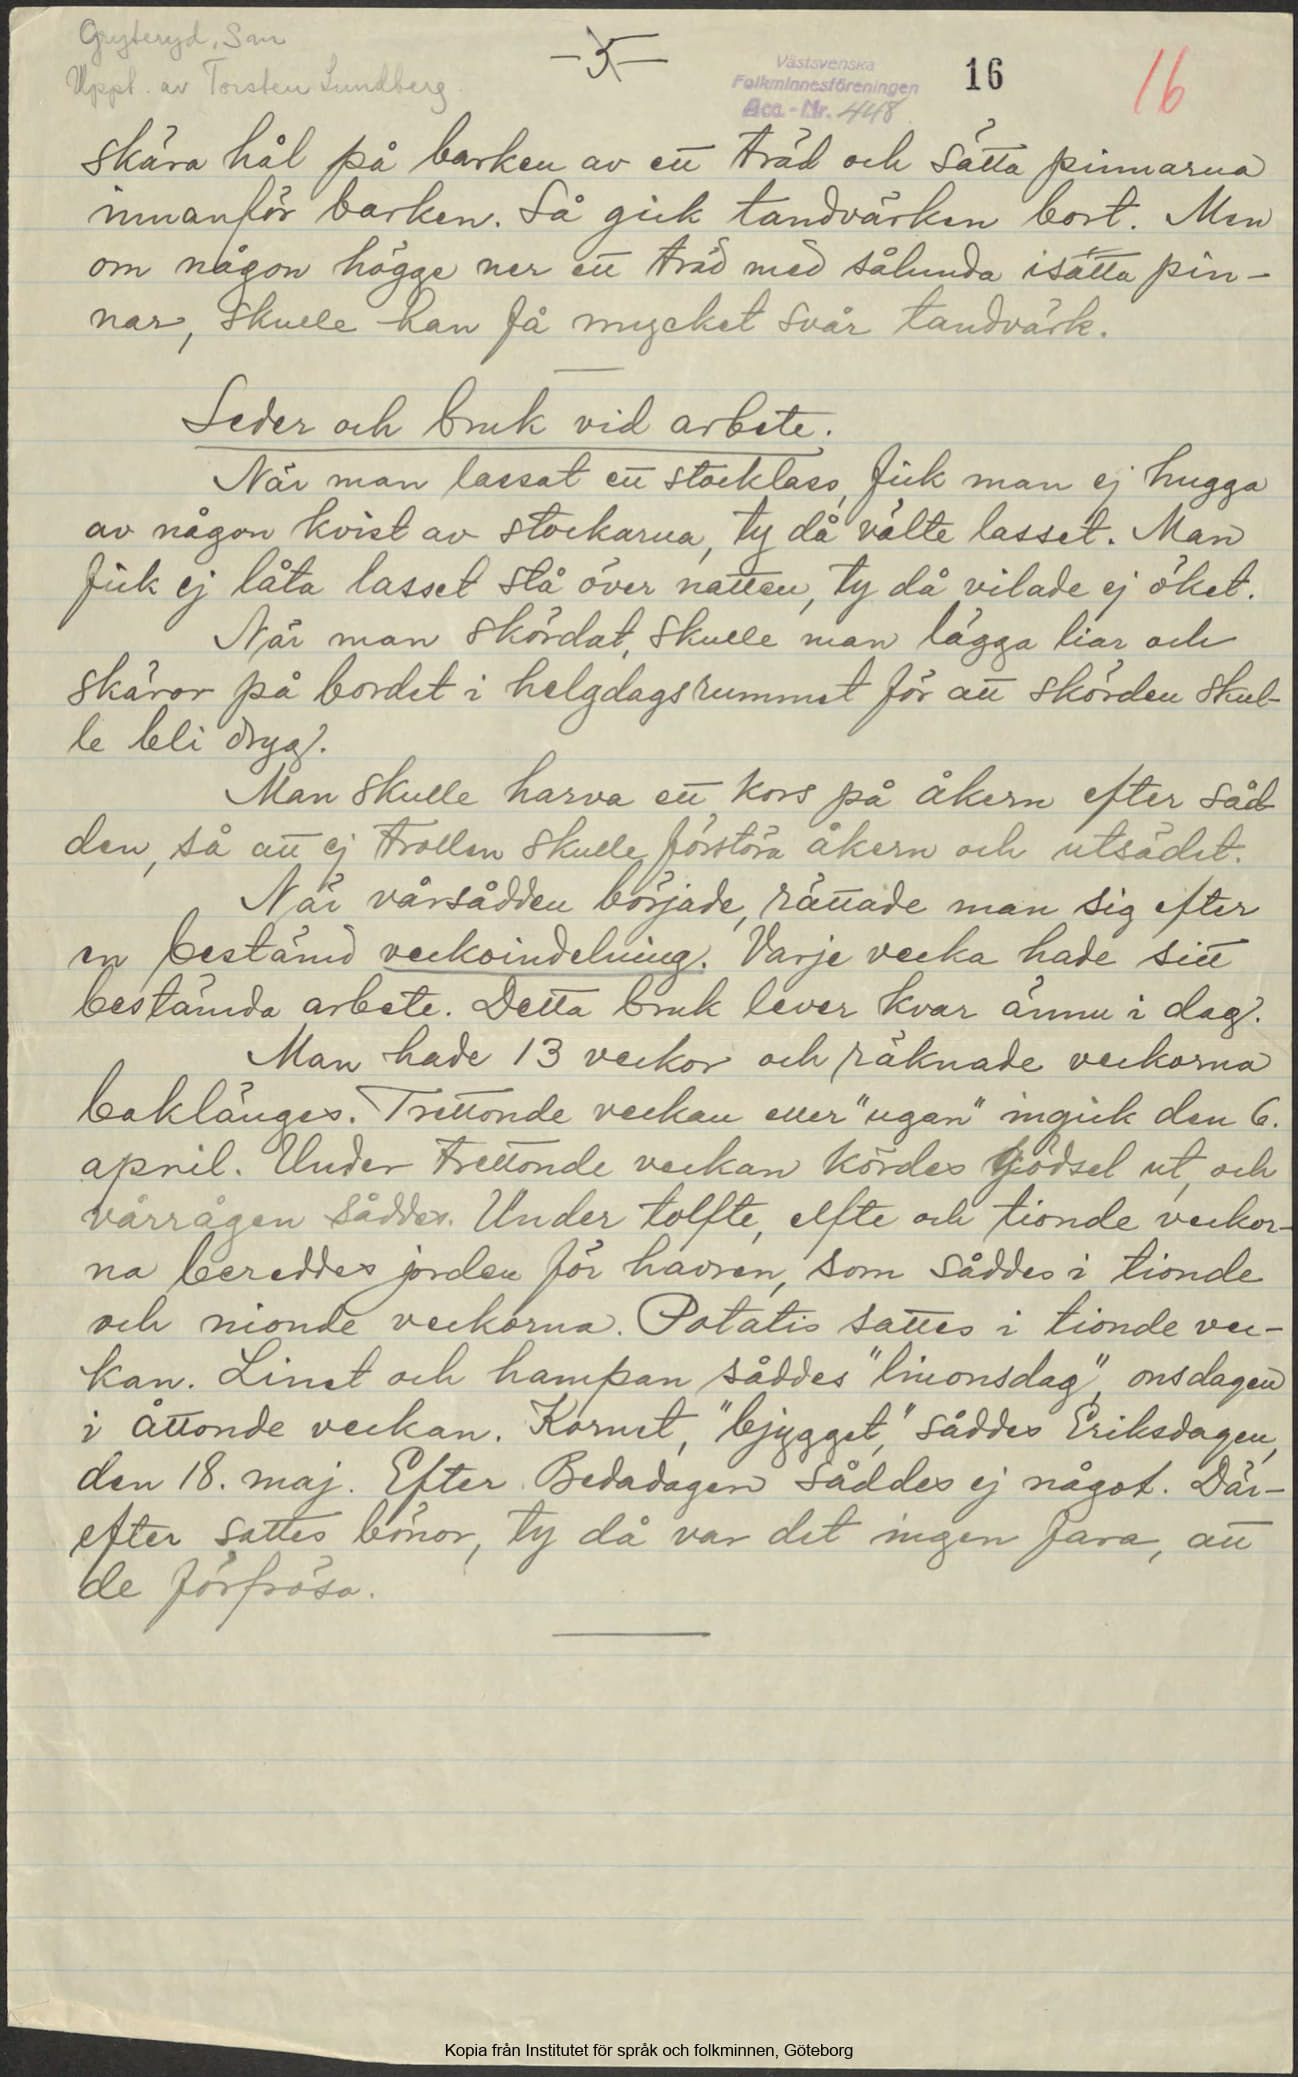 Gryteryd, Sm
Uppt. av Torsten Lundberg.
-5-
Västsvenska
Folkminnesföreningen
Acc.-Nr. 448
16
16
skära hål på barken av ett träd och sätta pinnarna
innanför barken. Så gick tandvärken bort. Men
om någon högge ner ett träd med sålunda isätta pin-
nar, skulle han få mycket svår tandvärk.
Seder och bruk vid arbete.
När man lassat ett stocklass, fick man ej hugga
av någon kvist av stockarna, ty då välte lasset. Man
fick ej låta lasset stå över natten, ty då vilade ej öket.
När man skördat, skulle man lägga liar och
skäror på bordet i helgdagsrummet för att skörden skul-
le bli dryg.
Man skulle harva ett kors på åkern efter såd-
den, så att ej trollen skulle förstöra åkern och utsädet.
När vårsådden började, rättade man sig efter
en bestämd veckoindelning. Varje vecka hade sitt
bestämda arbete. Detta bruk lever kvar ännu i dag.
Man hade 13 veckor och räknade veckorna
baklänges. Trettonde veckan eller "ugan" ingick den 6.
april. Under trettonde veckan kördes gödsel ut, och
vårrågen såddes. Under tolfte, elfte och tionde veckor-
na bereddes jorden för havren, som såddes i tionde
och nionde veckorna. Potatis sattes i tionde vec-
kan. Linet och hampan såddes "linonsdag", onsdagen
i åttonde veckan. Kornet, "bjygget," såddes Eriksdagen,
den 18. maj. Efter Bedadagen såddes ej något. Där-
efter sattes bönor, ty då var det ingen fara, att
de förfrösa.
Kopia från Institutet för språk och folkminnen, Göteborg